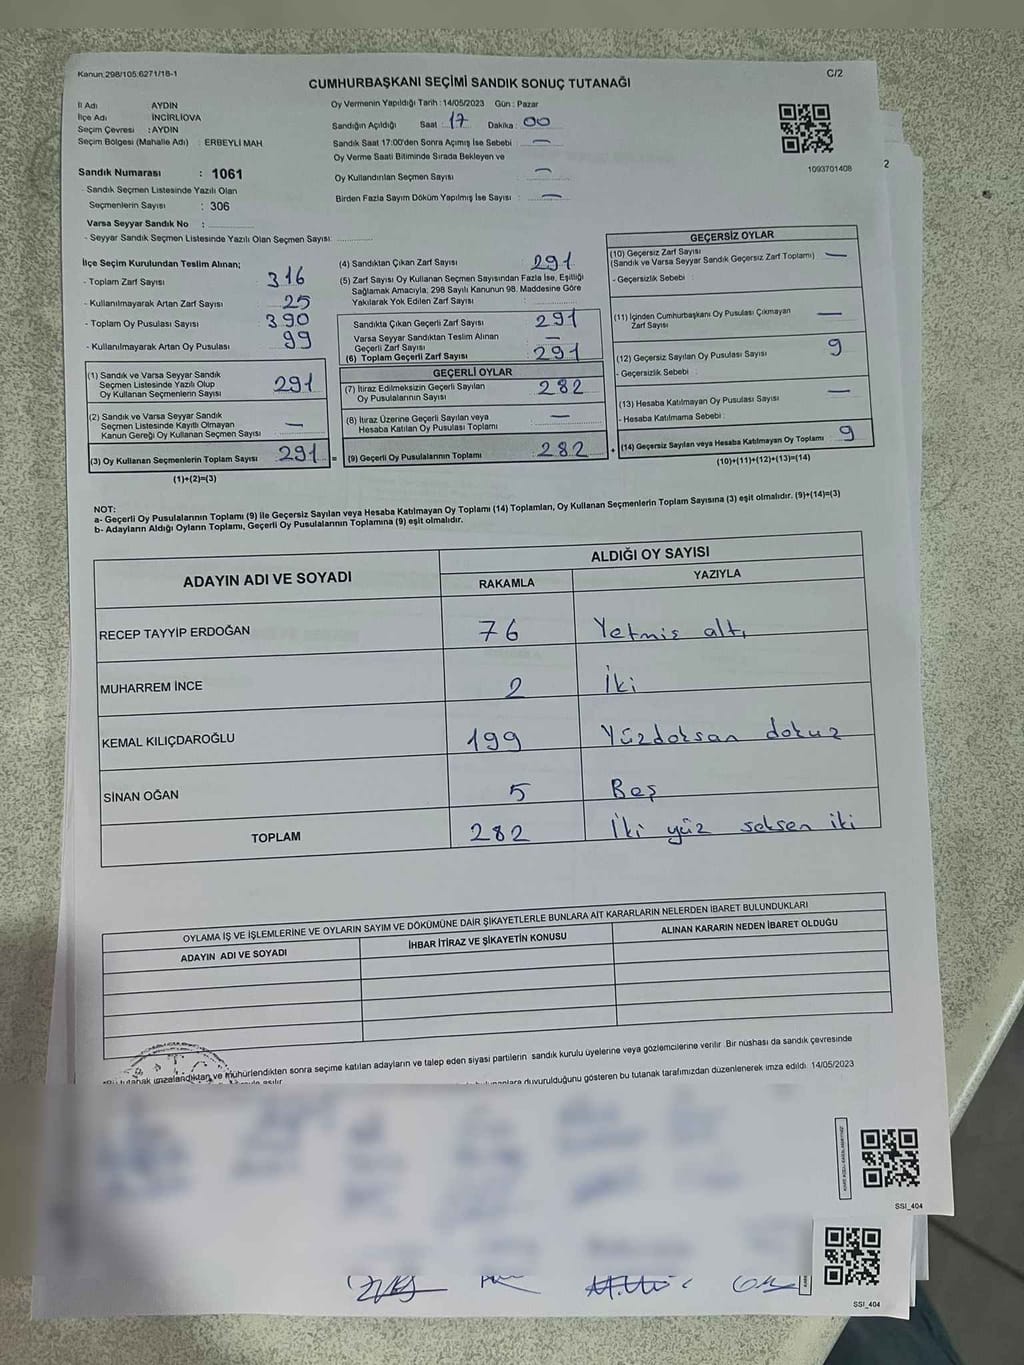 Kanun 298/105:6271/18-1
C/2
CUMHURBAŞKANI SEÇİMİ SANDIK SONUÇ TUTANAĞI
İl Adı AYDIN
İlçe Adı İNCİRLİOVA
Seçim Çevresi : AYDIN
Seçim Bölgesi (Mahalle Adı) : ERBEYLİ MAH
Sandık Numarası : 1061
- Sandık Seçmen Listesinde Yazılı Olan
Seçmenlerin Sayısı : 306
Varsa Seyyar Sandık No :
- Seyyar Sandık Seçmen Listesinde Yazılı Olan Seçmen Sayısı:
Oy Vermenin Yapıldığı Tarih : 14/05/2023 Gün : Pazar
Sandığın Açıldığı Saat : 17 Dakika : 00
Sandık Saat 17:00'den Sonra Açımış İse Sebebi —
Oy Verme Saati Bitiminde Sırada Bekleyen ve
Oy Kullandırılan Seçmen Sayısı —
Birden Fazla Sayım Döküm Yapılmış İse Sayısı : —
1093701408
2
İlçe Seçim Kurulundan Teslim Alınan;
- Toplam Zarf Sayısı 316
- Kullanılmayarak Artan Zarf Sayısı 25
- Toplam Oy Pusulası Sayısı 390
- Kullanılmayarak Artan Oy Pusulası 99
(1) Sandık ve Varsa Seyyar Sandık
Seçmen Listesinde Yazılı Olup
Oy Kullanan Seçmenlerin Sayısı 291
(2) Sandık ve Varsa Seyyar Sandık
Seçmen Listesinde Kayıtlı Olmayan
Kanun Gereği Oy Kullanan Seçmen Sayısı —
(3) Oy Kullanan Seçmenlerin Toplam Sayısı 291 =
(1)+(2)=(3)
(4) Sandıktan Çıkan Zarf Sayısı 291
(5) Zarf Sayısı Oy Kullanan Seçmen Sayısından Fazla İse, Eşitliği
Sağlamak Amacıyla, 298 Sayılı Kanunun 98. Maddesine Göre
Yakılarak Yok Edilen Zarf Sayısı :
Sandıkta Çıkan Geçerli Zarf Sayısı 291
Varsa Seyyar Sandıktan Teslim Alınan
Geçerli Zarf Sayısı —
(6) Toplam Geçerli Zarf Sayısı 291
GEÇERLİ OYLAR
(7) İtiraz Edilmeksizin Geçerli Sayılan
Oy Pusulalarının Sayısı 282
(8) İtiraz Üzerine Geçerli Sayılan veya
Hesaba Katılan Oy Pusulası Toplamı —
(9) Geçerli Oy Pusulalarının Toplamı 282 +
GEÇERSİZ OYLAR
(10) Geçersiz Zarf Sayısı
(Sandık ve Varsa Seyyar Sandık Geçersiz Zarf Toplamı) —
- Geçersizlik Sebebi :
(11) İçinden Cumhurbaşkanı Oy Pusulası Çıkmayan
Zarf Sayısı —
(12) Geçersiz Sayılan Oy Pusulası Sayısı 9
- Geçersizlik Sebebi :
(13) Hesaba Katılmayan Oy Pusulası Sayısı —
- Hesaba Katılmama Sebebi :
(14) Geçersiz Sayılan veya Hesaba Katılmayan Oy Toplamı 9
(10)+(11)+(12)+(13)=(14)
NOT:
a- Geçerli Oy Pusulalarının Toplamı (9) ile Geçersiz Sayılan veya Hesaba Katılmayan Oy Toplamı (14) Toplamları, Oy Kullanan Seçmenlerin Toplam Sayısına (3) eşit olmalıdır. (9)+(14)=(3)
b- Adayların Aldığı Oyların Toplamı, Geçerli Oy Pusulalarının Toplamına (9) eşit olmalıdır.
ADAYIN ADI VE SOYADI ALDIĞI OY SAYISI
RAKAMLA YAZIYLA
RECEP TAYYİP ERDOĞAN 76 Yetmis altı
MUHARREM İNCE 2 İki
KEMAL KILIÇDAROĞLU 199 Yüzdoksan dokuz
SİNAN OĞAN 5 Beş
TOPLAM 282 İki yüz seksen iki
OYLAMA İŞ VE İŞLEMLERİNE VE OYLARIN SAYIM VE DÖKÜMÜNE DAİR ŞİKAYETLERLE BUNLARA AİT KARARLARIN NELERDEN İBARET BULUNDUKLARI
ADAYIN ADI VE SOYADI İHBAR İTİRAZ VE ŞİKAYETİN KONUSU ALINAN KARARIN NEDEN İBARET OLDUĞU
tutanak imzalandıktan ve mühürlendikten sonra seçime katılan adayların ve talep eden siyasi partilerin sandık kurulu üyelerine veya gözlemcilerine verilir. Bir nüshası da sandık çevresinde
duyurulduğunu gösteren bu tutanak tarafımızdan düzenlenerek imza edildi. 14/05/2023
SSI_404
SSI_404